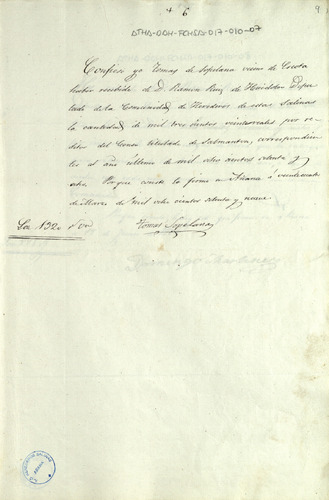 6
9
ATHA-DOH-FCHSA-017-010-07
Confieso yo Tomas de Sopelana vecino de
haber recibido de D. Ramon Ruiz de Dipu
tado de la Comunidad de Herederos de estas Salinas
la cantidad de mil tres cientos veinte reales por re
ditos del Censo titulado de Salmanton, correspondien
tes al año último de mil ocho cientos setenta y
ocho. Y para que conste lo firmo en Añana á veinticuatro
de Marzo de mil ocho cientos setenta y nueve
Son 1320 rvon
Tomas Sopelana